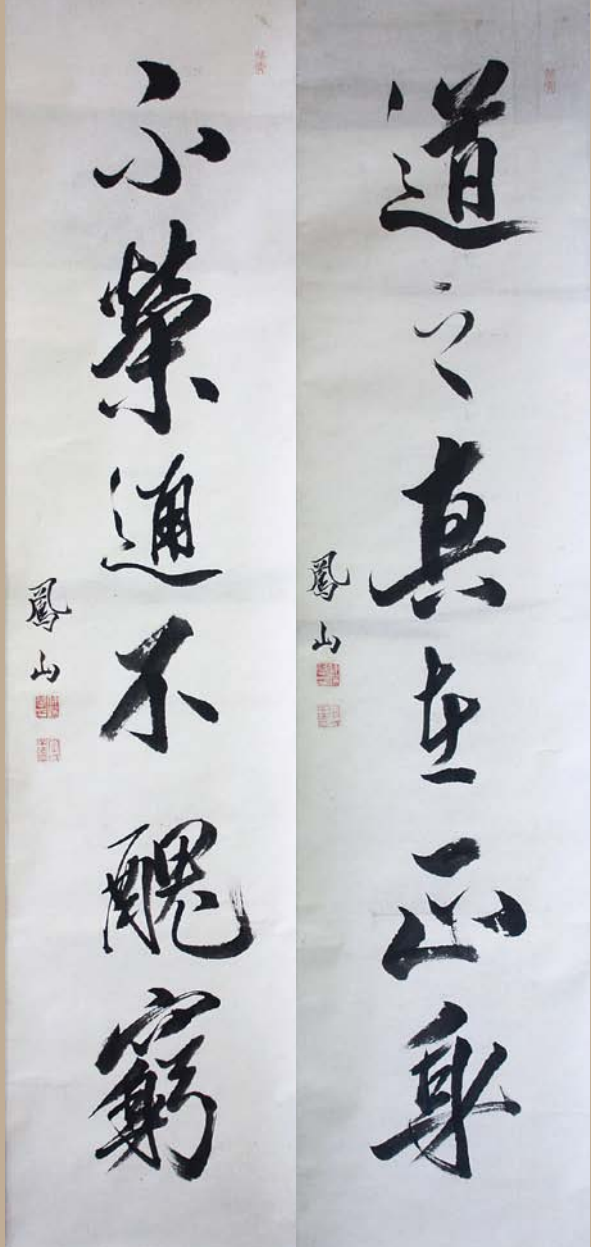 道之真在正身
鳳山
不榮通不醜窮
鳳山